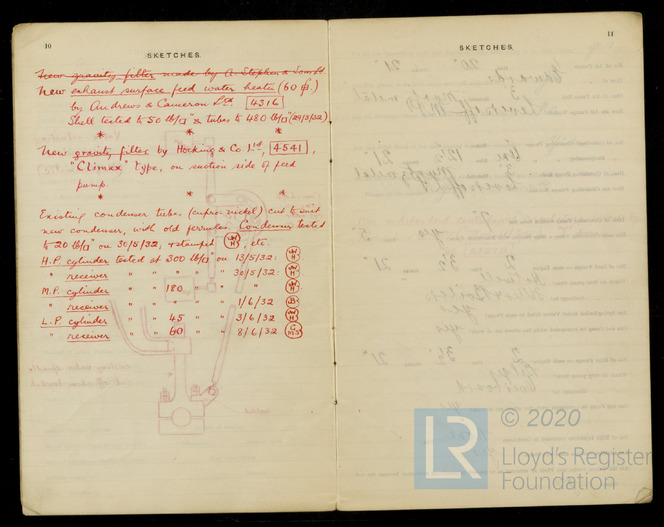 10
SKETCHES.
New gravity filter made by A. Stephen & Sons Ld.
New exhaust surface feed water heater (60 ф.)
by Andrews & Cameron Ltd 4316
Shell tested to 50 lb/□" & tubes to 480 lb/□" (29/3/32)
* * *
New gravity filter by Hocking & Co Ltd, 4541,
"Climax" type, on suction side of feed
pump.
* * *
Existing condenser tubes (cupro-nickel) cut to suit
new condenser, with old ferrules. Condenser tested
to 20 lb/□" on 30/5/32, & stamped, etc.
H.P. cylinder tested at 300 lb/□" on 13/5/32:
" receiver " " " " 30/5/32:
M.P. cylinder " " 180 " " "
" receiver " " " " 1/6/32
L.P. cylinder " " 45 " " 3/6/32
" receiver " " 60 " " 8/6/32
11
SKETCHES.
LR © 2020
Lloyd's Register
Foundation